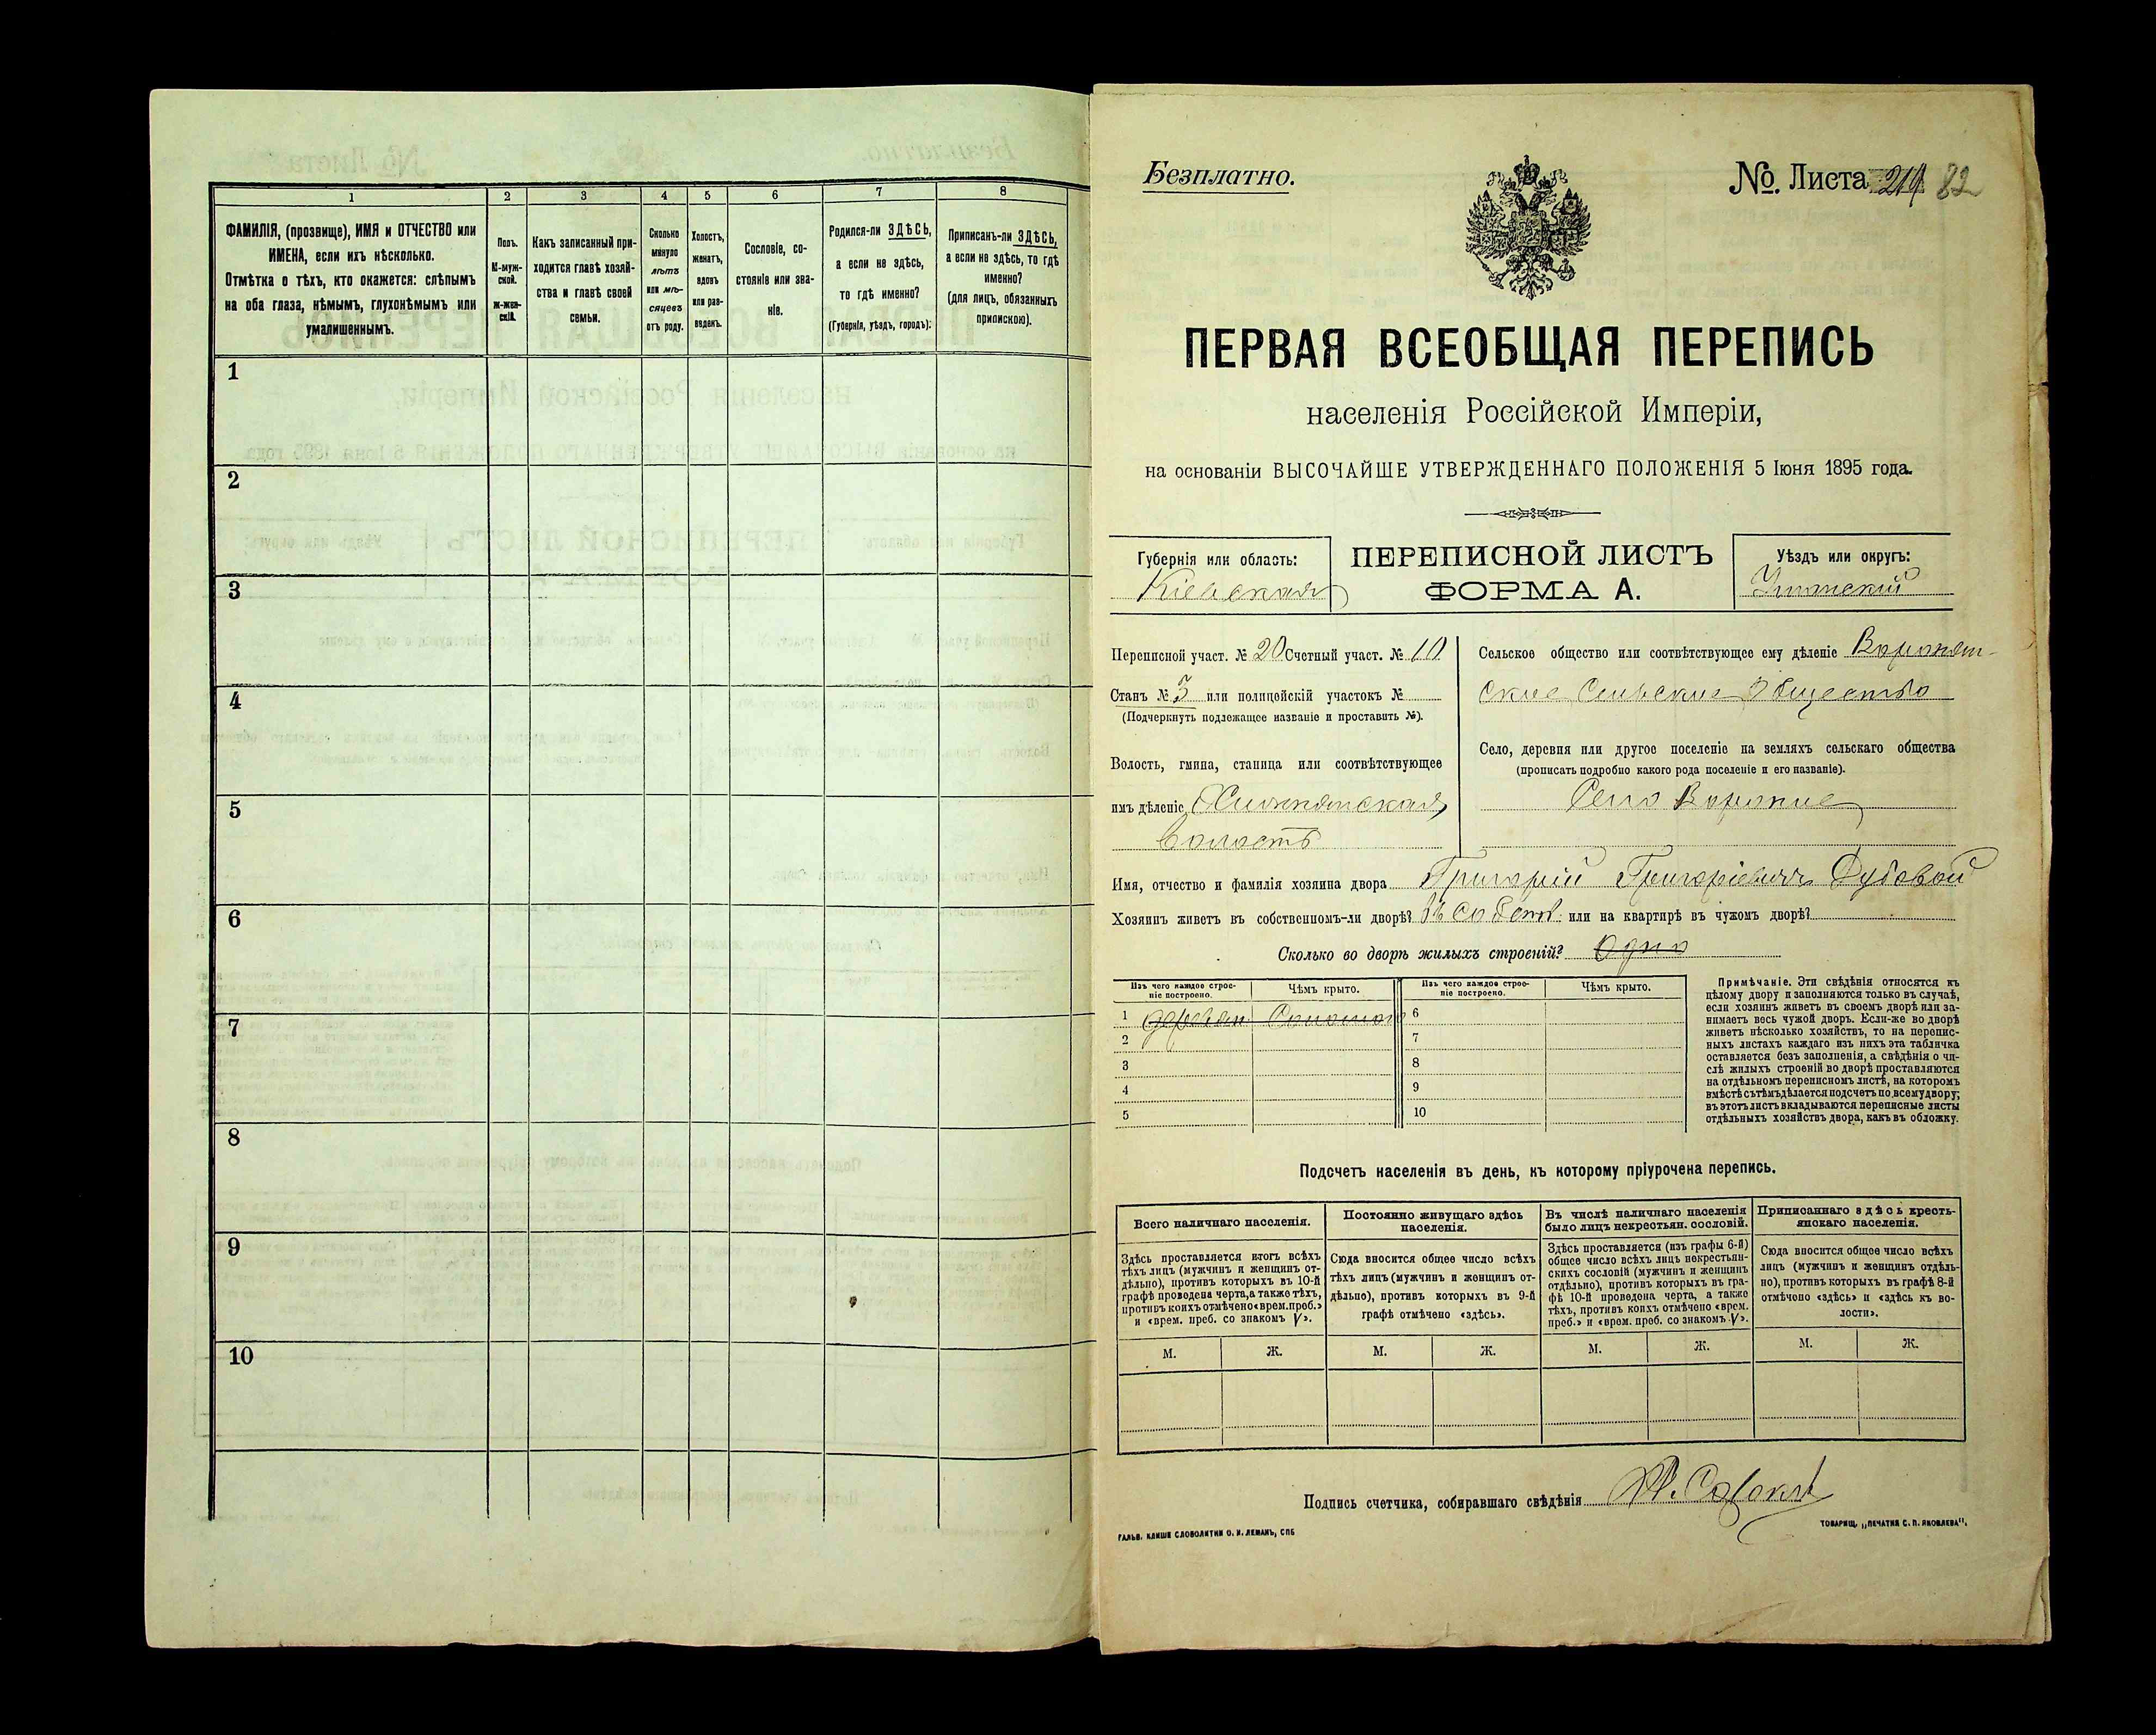 1 2 3 4 5 6 7 8
ФАМИЛІЯ, (прозвище), ИМЯ и ОТЧЕСТВО или
ИМЕНА, если ихъ нѣсколько.
Отмѣтка о тѣхъ, кто окажется: слѣпымъ
на оба глаза, нѣмымъ, глухонѣмымъ или
умалишеннымъ.
Полъ.
М-муж-
ской.
Ж-жен-
скій.
Какъ записанный при-
ходится главѣ хозяй-
ства и главѣ своей
семьи.
Сколько
минуло
лѣтъ
или мѣ-
сяцевъ
отъ роду.
Холостъ,
женатъ,
вдовъ
или раз-
веденъ.
Сословіе, со-
стояніе или зва-
ніе.
Родился-ли ЗДѢСЬ,
а если не здѣсь,
то гдѣ именно?
(Губернія, уѣздъ, городъ):
Приписанъ-ли ЗДѢСЬ,
а если не здѣсь, то гдѣ
именно?
(для лицъ, обязанныхъ
припискою).
1
2
3
4
5
6
7
8
9
10
Безплатно.
№. Листа 82
ПЕРВАЯ ВСЕОБЩАЯ ПЕРЕПИСЬ
населенія Россійской Имперіи,
на основаніи ВЫСОЧАЙШЕ УТВЕРЖДЕННАГО ПОЛОЖЕНІЯ 5 Іюня 1895 года.
Губернія или область:
Кіевская
ПЕРЕПИСНОЙ ЛИСТЪ
ФОРМА А.
Уѣздъ или округъ:
Уманскій
Переписной участ. № 20 Счетный участ. № 10
Станъ № 3 или полицейскій участокъ №
(Подчеркнуть подлежащее названіе и проставить №).
Волость, гмина, станица или соотвѣтствующее
имъ дѣленіе
волость
Сельское общество или соотвѣтствующее ему дѣленіе
Сельское Общество
Село, деревня или другое поселеніе на земляхъ сельскаго общества
(прописать подробно какого рода поселеніе и его названіе).
Село Вороное
Имя, отчество и фамилія хозяина двора Григорій Григоріевичъ Дубовой
Хозяинъ живетъ въ собственномъ-ли дворѣ? въ собств. или на квартирѣ въ чужомъ дворѣ?
Сколько во дворѣ жилыхъ строеній? Одно
Изъ чего каждое строе-
ніе построено.
Чѣмъ крыто.
Изъ чего каждое строе-
ніе построено.
Чѣмъ крыто.
1 деревян. Соломою 6
2 7
3 8
4 9
5 10
Примѣчаніе. Эти свѣдѣнія относятся къ
цѣлому двору и заполняются только въ случаѣ,
если хозяинъ живетъ въ своемъ дворѣ или за-
нимаетъ весь чужой дворъ. Если-же во дворѣ
живетъ нѣсколько хозяйствъ, то на перепис-
ныхъ листахъ каждаго изъ нихъ эта табличка
оставляется безъ заполненія, а свѣдѣнія о чи-
слѣ жилыхъ строеній во дворѣ проставляются
на отдѣльномъ переписномъ листѣ, на которомъ
вмѣстѣ съ тѣмъ дѣлается подсчетъ по всему двору;
въ этотъ листъ вкладываются переписные листы
отдѣльныхъ хозяйствъ двора, какъ въ обложку.
Подсчетъ населенія въ день, къ которому пріурочена перепись.
Всего наличнаго населенія.
Здѣсь проставляется итогъ всѣхъ
тѣхъ лицъ (мужчинъ и женщинъ от-
дѣльно), противъ которыхъ въ 10-й
графѣ проведена черта, а также тѣхъ,
противъ коихъ отмѣчено «врем. проб.»
и «врем. преб. со знакомъ V».
Постоянно живущаго здѣсь
населенія.
Сюда вносится общее число всѣхъ
тѣхъ лицъ (мужчинъ и женщинъ от-
дѣльно), противъ которыхъ въ 9-й
графѣ отмѣчено «здѣсь».
Въ числѣ наличнаго населенія
было лицъ некрестьян. сословій.
Здѣсь проставляется (изъ графы 6-й)
общее число всѣхъ лицъ некрестьян-
скихъ сословій (мужчинъ и женщинъ
отдѣльно), противъ которыхъ въ гра-
фѣ 10-й проведена черта, а также
тѣхъ, противъ коихъ отмѣчено «врем.
преб.» и «врем. преб. со знакомъ V».
Приписаннаго здѣсь кресть-
янскаго населенія.
Сюда вносится общее число всѣхъ
лицъ (мужчинъ и женщинъ отдѣль-
но), противъ которыхъ въ графѣ 8-й
отмѣчено «здѣсь» и «здѣсь къ во-
лости».
М. Ж. М. Ж. М. Ж. М. Ж.
Подпись счетчика, собиравшаго свѣдѣнія
ГАЛЬВ. КЛИШЕ СЛОВОЛИТНИ О. И. ЛЕМАНЪ, СПБ
ТОВАРИЩ. „ПЕЧАТНЯ С. П. ЯКОВЛЕВА".